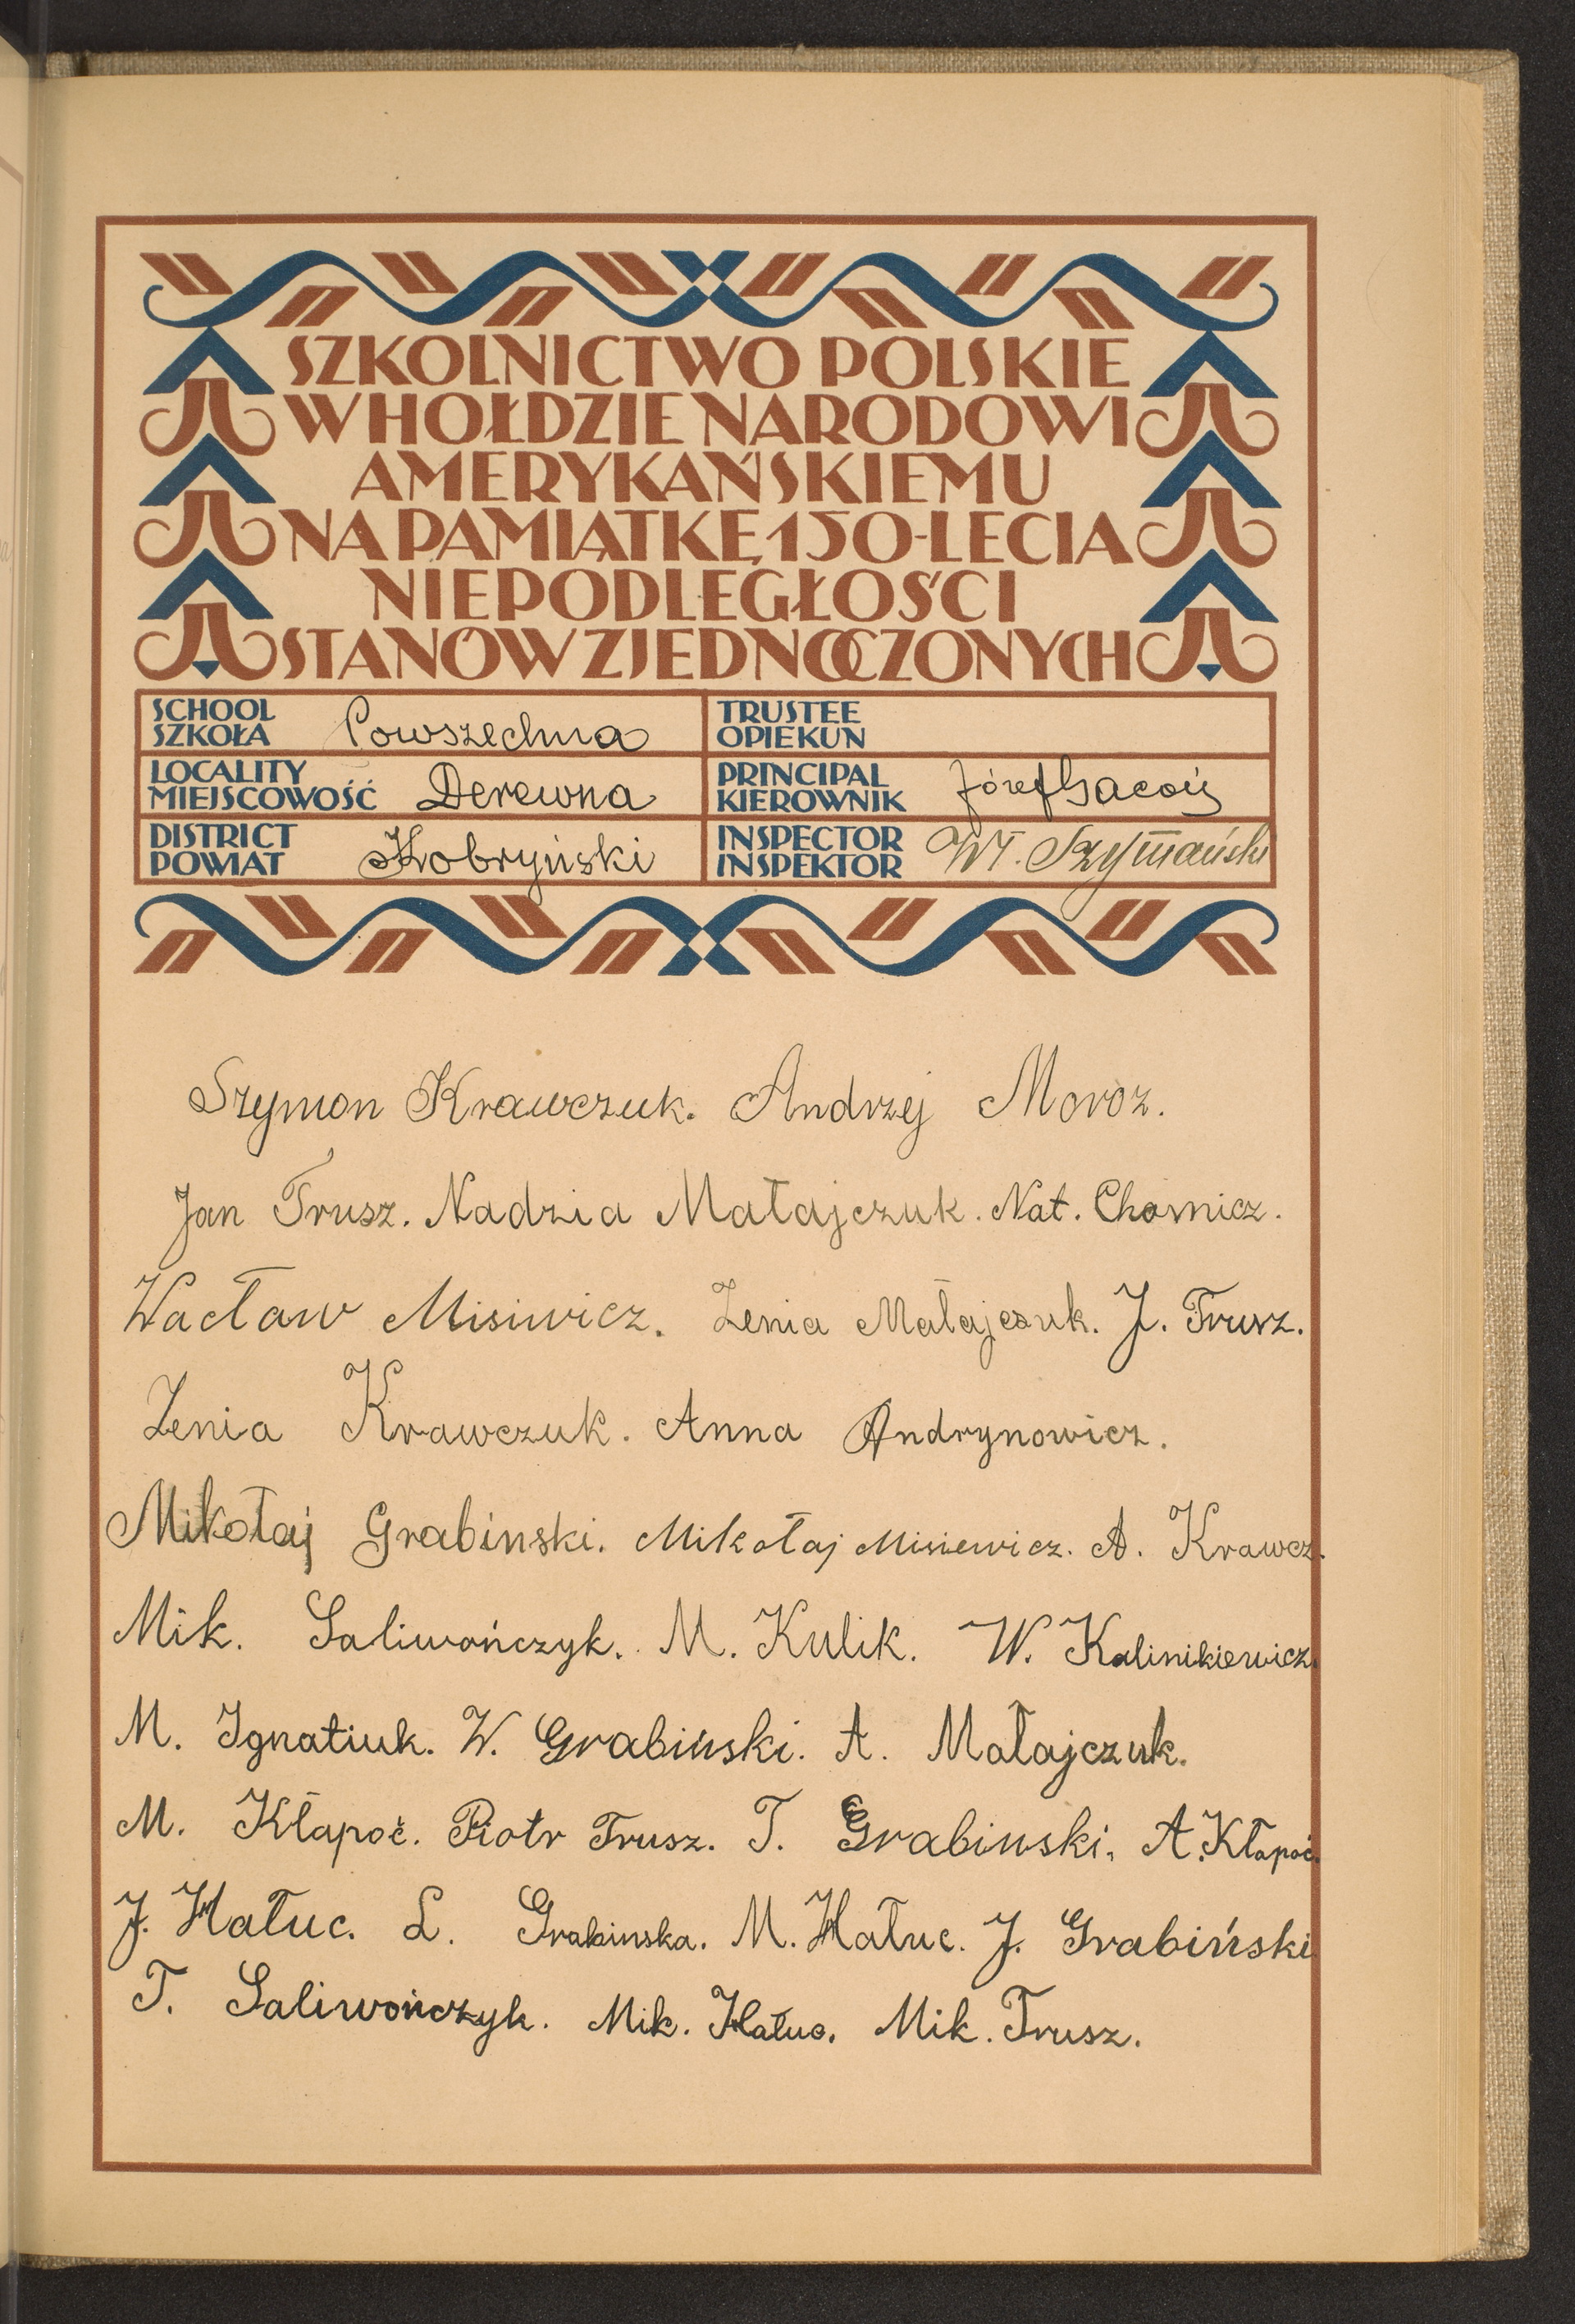 SZKOLNICTWO POLSKIE
W HOŁDZIE NARODOWI
AMERYKAŃSKIEMU
NA PAMIĄTKĘ 150-LECIA
NIEPODLEGŁOŚCI
STANÓW ZJEDNOCZONYCH
SCHOOL
SZKOŁA Powszechna
TRUSTEE
OPIEKUN
LOCALITY
MIEJSCOWOŚĆ Derewna
PRINCIPAL
KIEROWNIK Józef Gacoń
DISTRICT
POWIAT Kobryński
INSPECTOR
INSPEKTOR Wł. Szymański
Szymon Krawczuk. Andrzej Moroz.
Jan Trusz. Nadzia Małajczuk. Nat. Chomicz.
Wacław Misiwicz. Zenia Małajczuk. J. Trusz.
Zenia Krawczuk. Anna Andrynowicz.
Mikołaj Grabinski. Mikołaj Misiewicz. A. Krawcz.
Mik. Saliwończyk. M. Kulik. W. Kalinikiewicz.
M. Ignatiuk. W. Grabiński. A. Małajczuk.
M. Kłapoć. Piotr Trusz. T. Grabinski. A. Kłapoć.
J. Hałuc. L. Grabinska. M. Hałuc. J. Grabiński
T. Saliwończyk. Mik. Hałuc. Mik. Trusz.